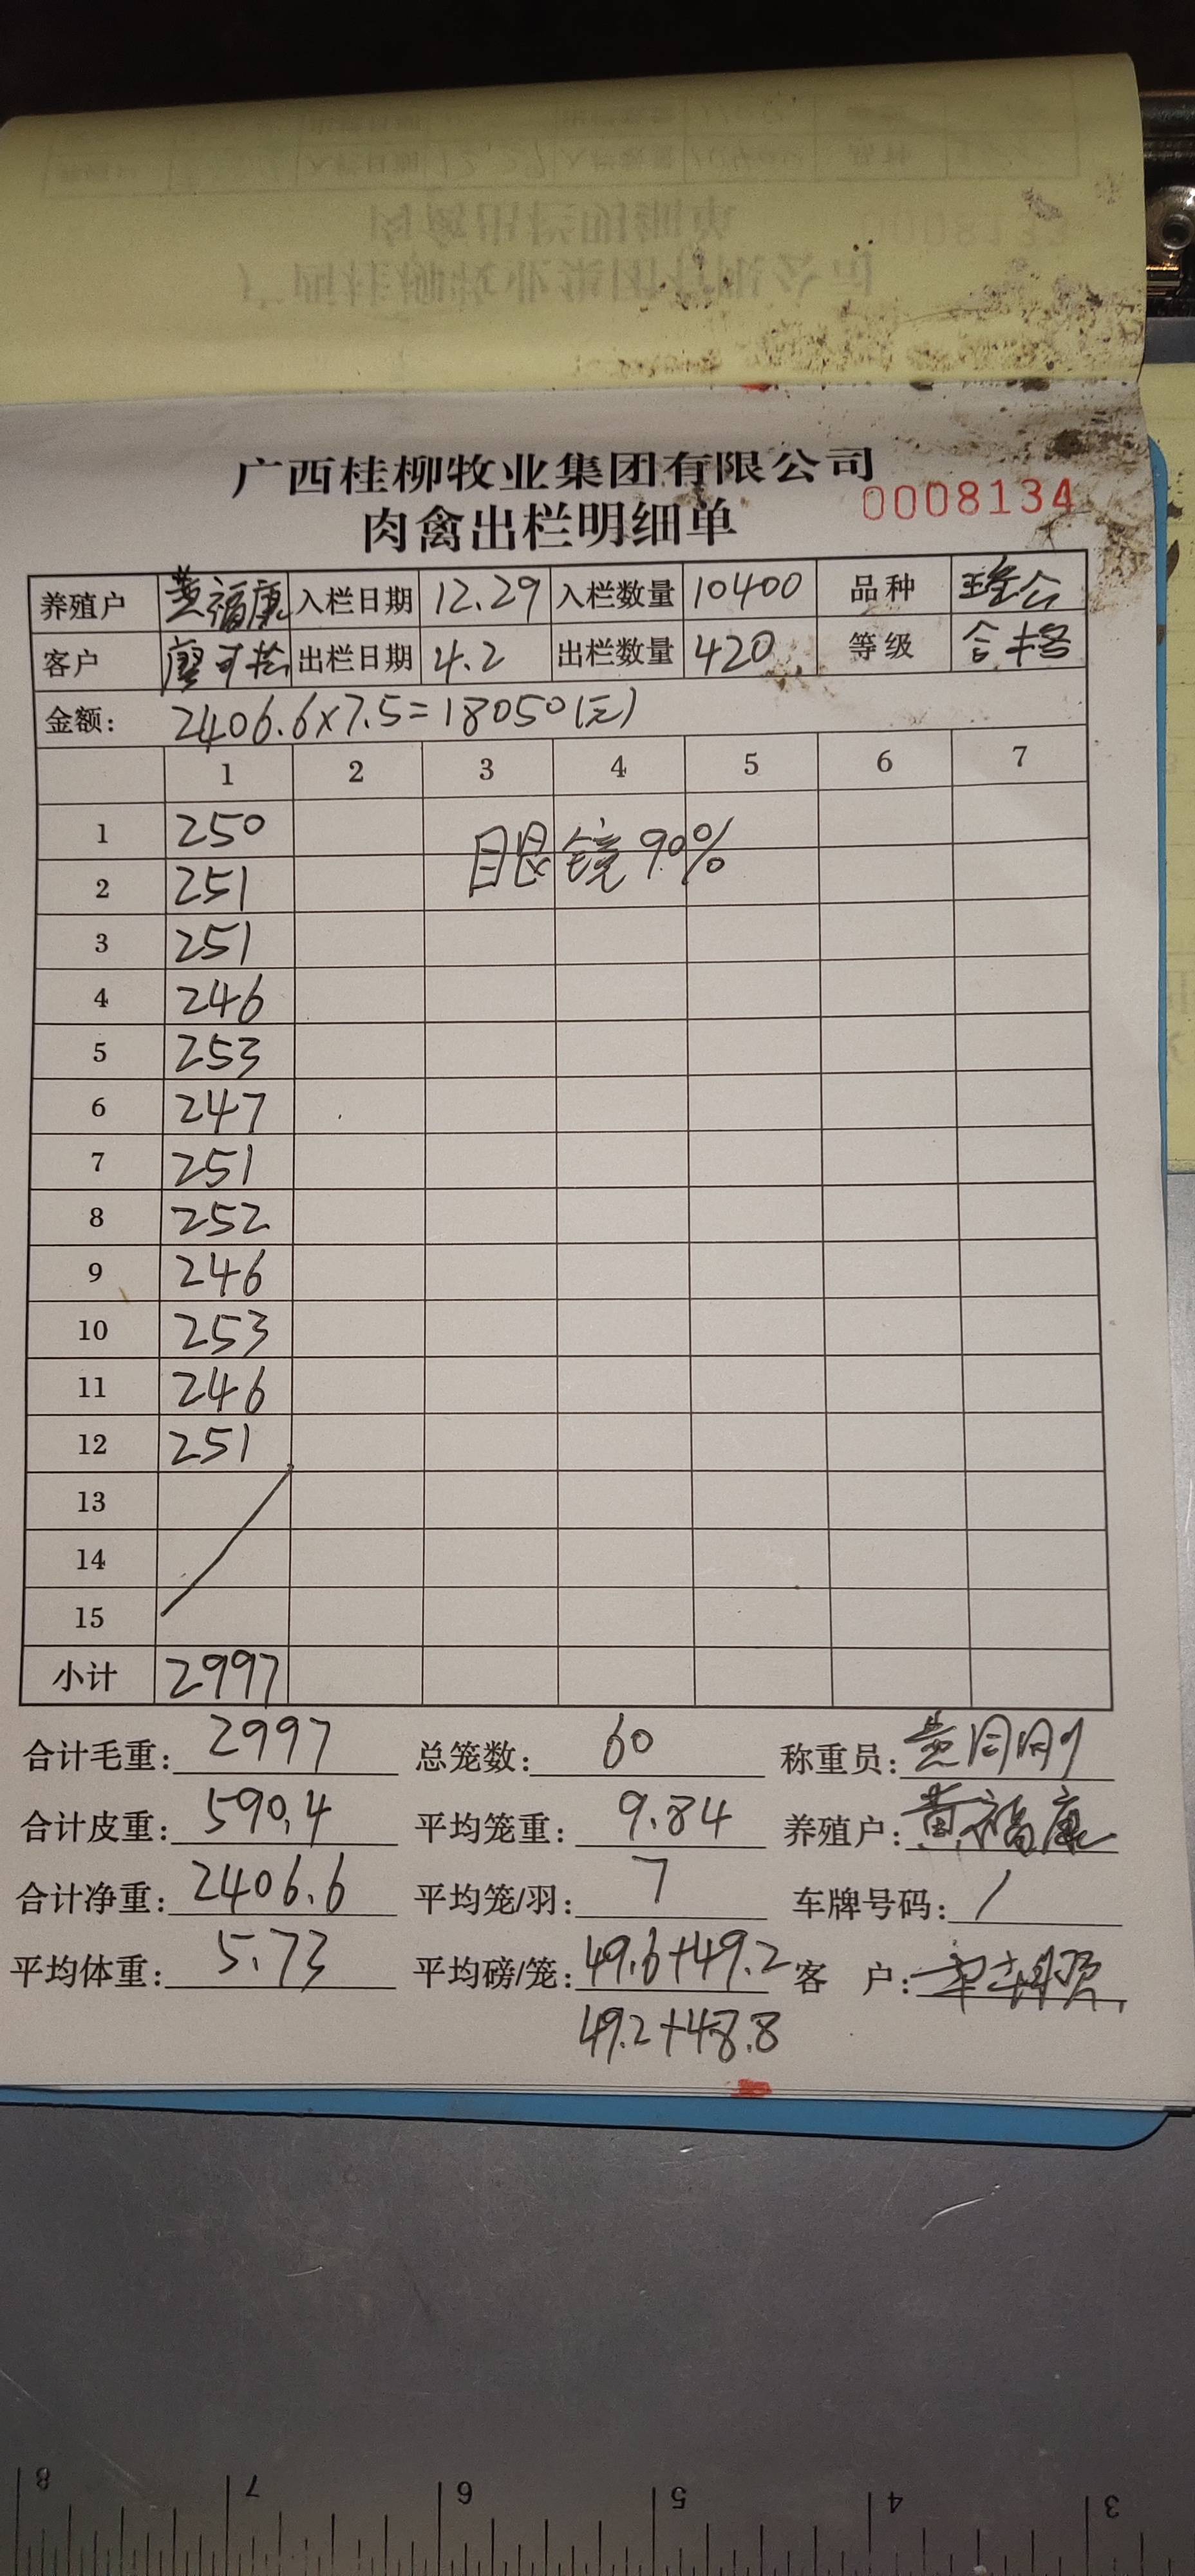 广西桂柳牧业集团有限公司
肉禽出栏明细单 0008134
养殖户 黄福康 入栏日期 12.29 入栏数量 10400 品种
客户 廖可 出栏日期 4.2 出栏数量 420 等级 合格
金额: 2406.6×7.5=18050(元)
1 2 3 4 5 6 7
1 250
眼镜90%
2 251
3 251
4 246
5 253
6 247
7 251
8 252
9 246
10 253
11 246
12 251
13
14
15
小计 2997
合计毛重: 2997 总笼数: 60 称重员:
合计皮重: 590.4 平均笼重: 9.84 养殖户: 黄福康
合计净重: 2406.6 平均笼/羽: 7 车牌号码: /
平均体重: 5.73 平均磅/笼: 49.6+49.2 客 户:
49.2+48.8
8 7 6 5 4 3